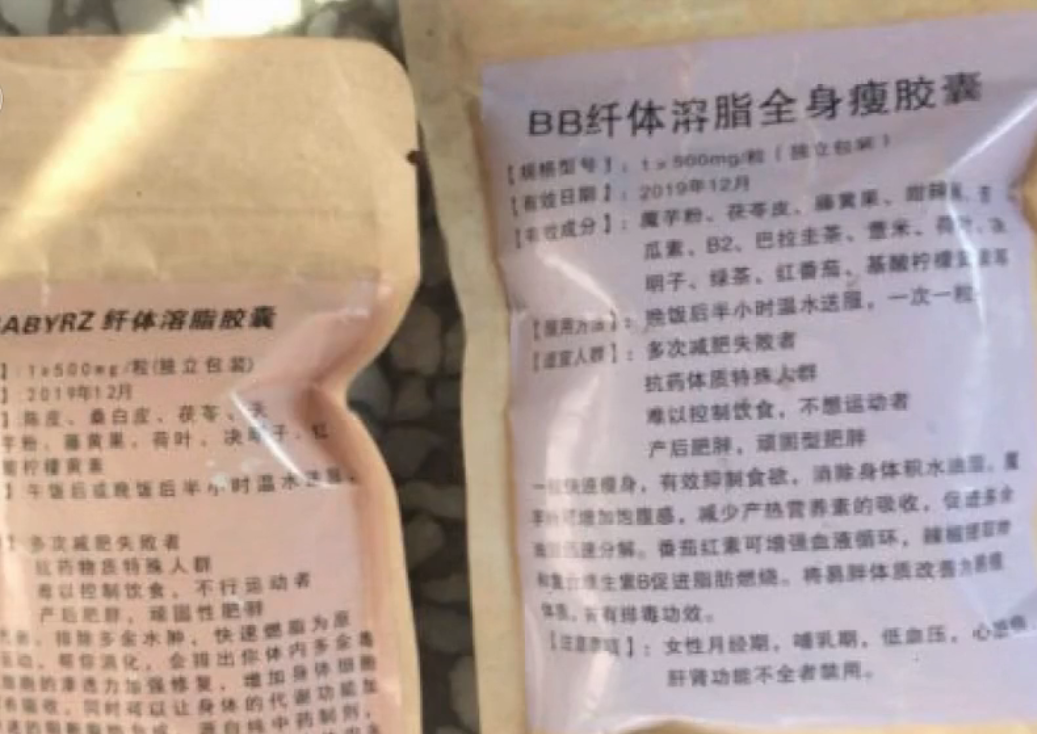 ABYRZ 纤体溶脂胶囊
】：1×500mg/粒(独立包装)
】：2019年12月
】陈皮、桑白皮、茯苓、
芋粉、藤黄果、荷叶、决明子、红
酸柠檬黄素
】午饭后或晚饭后半小时温水送服，
】多次减肥失败者
抗药物质特殊人群
难以控制饮食，不行运动者
产后肥胖，顽固性肥胖
排除多余水肿，快速燃脂为原
帮你消化，会排出你体内多余毒
胞的渗透力加强修复，增加身体细胞
吸收，同时可以让身体的代谢功能加
源自纯中药制剂，
BB纤体溶脂全身瘦胶囊
【规格型号】：1×500mg/粒（独立包装）
【有效日期】：2019年12月
【有效成分】：魔芋粉、茯苓皮、藤黄果、甜辣
瓜素、B2、巴拉圭茶、薏米、荷叶、决
明子、绿茶、红番茄、基酸柠檬
【服用方法】：晚饭后半小时温水送服，一次一粒
【适宜人群】：多次减肥失败者
抗药体质特殊人群
难以控制饮食，不想运动者
产后肥胖，顽固型肥胖
一粒快速瘦身，有效抑制食欲，消除身体积水油湿。魔
芋粉可增加饱腹感，减少产热营养素的吸收，促进多余
迅速分解。番茄红素可增强血液循环，辣椒提取物
和复合维生素B促进脂肪燃烧。将易胖体质改善为易瘦
体质。有排毒功效。
【注意事项】：女性月经期，哺乳期，低血压，心
肝肾功能不全者禁用。